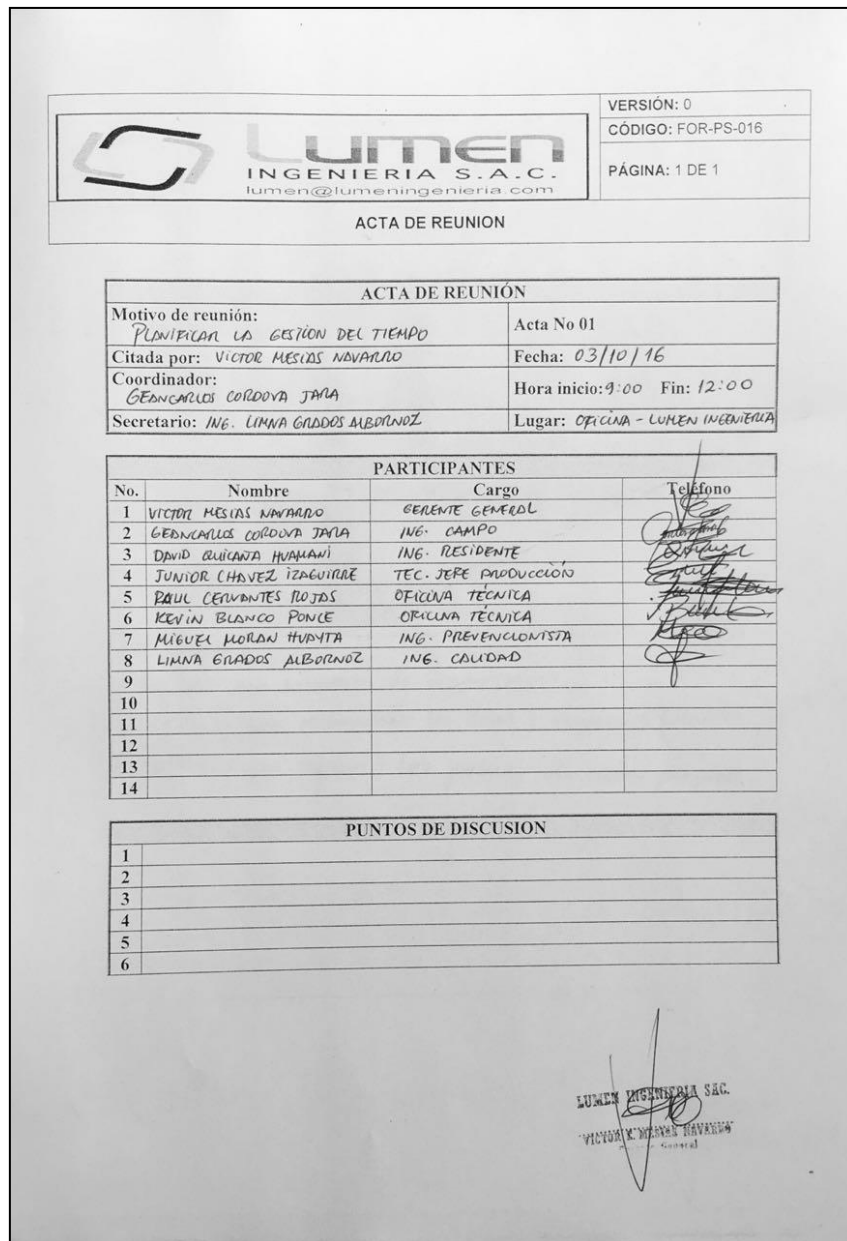 VERSIÓN: 0
CÓDIGO: FOR-PS-016
PÁGINA: 1 DE 1
Lumen
INGENIERIA S.A.C.
lumen@lumeningenieria.com
ACTA DE REUNION
ACTA DE REUNIÓN
Motivo de reunión:
PLANIFICAR LA GESTION DEL TIEMPO
Acta No 01
Citada por: VICTOR MESIAS NAVARRO
Fecha: 03/10/16
Coordinador:
GEANCARLOS CORDOVA JARA
Hora inicio: 9:00 Fin: 12:00
Secretario: ING. LIMNA GRADOS ALBORNOZ
Lugar: OFICINA - LUMEN INGENIERIA
PARTICIPANTES
No. Nombre Cargo Teléfono
1 VICTOR MESIAS NAVARRO GERENTE GENERAL
2 GEANCARLOS CORDOVA JARA ING. CAMPO
3 DAVID QUICAÑA HUAMANI ING. RESIDENTE
4 JUNIOR CHAVEZ IZAGUIRRE TEC. JEFE PRODUCCIÓN
5 RAUL CERVANTES ROJAS OFICINA TÉCNICA
6 KEVIN BLANCO PONCE OFICINA TÉCNICA
7 MIGUEL MORAN HUAYTA ING. PREVENCIONISTA
8 LIMNA GRADOS ALBORNOZ ING. CALIDAD
9
10
11
12
13
14
PUNTOS DE DISCUSION
1
2
3
4
5
6
LUMEN INGENIERIA SAC.
VICTOR MESIAS NAVARRO
General